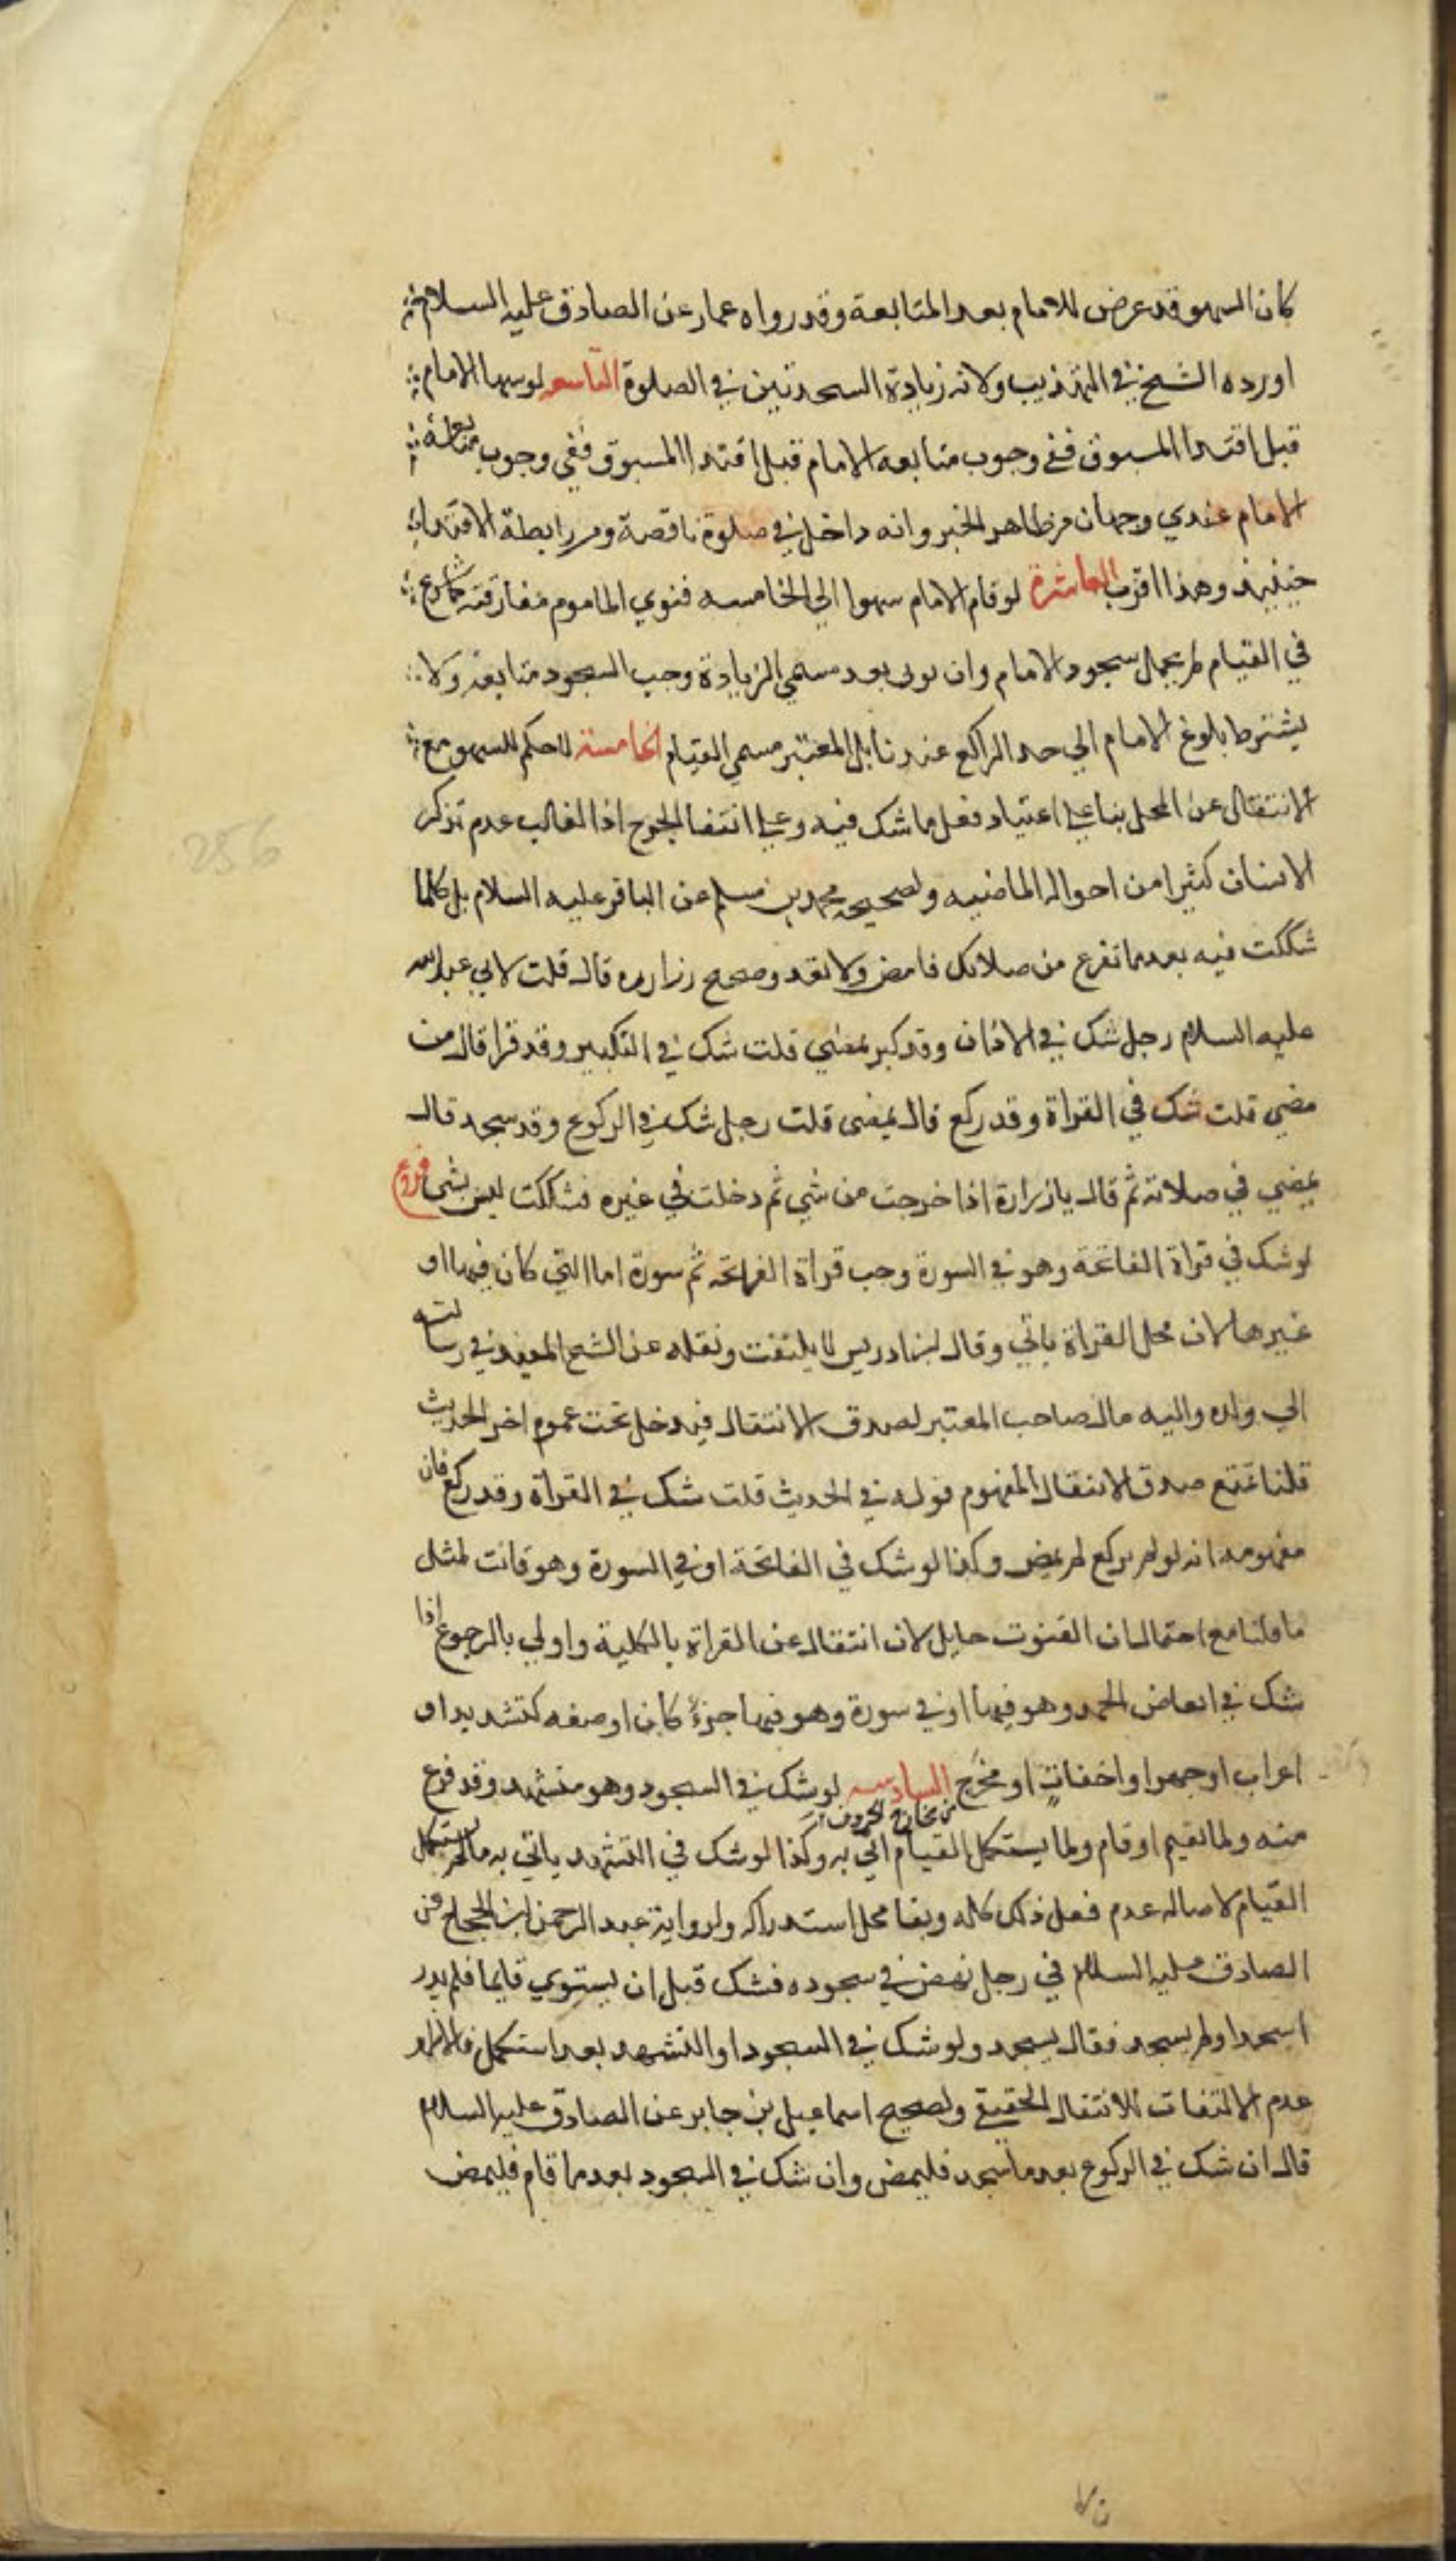 كان السهو قد عرض للامام بعد المتابعة وقد رواه عمار عن الصادق عليه السلام
اورده الشيخ في التهذيب ولانه زيادة السجدتين في الصلوة التاسعه لو سها الامام
قبل اقتدا المسبوق ففي وجوب متابعه الامام قبل اقتدا المسبوق ففي وجوب متابعة
الامام عندي وجهان من ظاهر الخبر وانه داخل في صلوة ناقصة ومن رابطة الاقتداء
حينيذ وهذا اقرب العاشرة لو قام الامام سهوا الي الخامسه فنوي الماموم مفارقته كما شرع
في القيام لم يحمل سجود الامام وان نوى بعد مسمي الزيادة وجب السجود متابعة ولا
يشترط بلوغ الامام الي حد الراكع عندنا بل المعتبر مسمي القيام الخامسة لا حكم للسهو مع
الانتقال عن المحل بنا علي اعتياد فعل ما شك فيه وعلي انتفا الحرج اذا الغالب عدم تذكر
الانسان كثيرا من احواله الماضيه ولصحيحه محمد بن مسلم عن الباقر عليه السلام بل كلما
شككت فيه بعد ما تفرع من صلاتك فامض ولا تعد وصحيح زراره قال قلت لابي عبد الله
عليه السلام رجل شك في الاذان وقد كبر يمضي قلت شك في التكبير وقد قرا قال من
مضي قلت شك في القراة وقد ركع قال يمضى قلت رجل شك في الركوع وقد سجد قال
يمضي في صلاته ثم قال يا زرارة اذا خرجت من شي ثم دخلت في غيره فشككت ليس بشي فروع
لو شك في قراة الفاتحة وهو في السورة وجب قراة الفاتحه ثم سورة اما التي كان فيها او
غيرها لان محل القراة باقي وقال ابن ادريس لا يلتفت ونقله عن الشيخ المفيد في رسالته
الي ولده واليه مال صاحب المعتبر لصدق الانتقال فيدخل تحت عموم اخر الحديث
قلنا تمنع صدق الانتقال المفهوم قوله في الحديث قلت شك في القراة وقد ركع فان
مفهومه انه لو لم يركع لم يمض وكذا لو شك في الفاتحة او في السورة وهو قانت لمثل
ما قلنا مع احتمال ان القنوت حايل لان انتقال عن القراة بالكلية واولي بالرجوع اذا
شك في ابعاض الحمد وهو فيها او في سورة وهو فيها جزءً كان او صفه كتشديد او
اعراب او جهر او اخفات او مخرج السادسه لو شك في السجود وهو متشهد وقد فرغ
من مخارج الحروف
منه ولما يقيم او قام ولما يستكمل القيام اتي به وكذا لو شك في التشهد ياتي به ما لم يستكمل
القيام لاصاله عدم فعل ذلك كله وبقا محل استدراكه ولرواية عبد الرحمن ابن الحجاج عن
الصادق عليه السلام في رجل نهض في سجوده فشك قبل ان يستوي قايما فلم يدر
اسجد او لم يسجد فقال يسجد ولو شك في السجود او التشهد بعد استكمل
عدم الالتفات للانتقال الحقيقي ولصحيح اسماعيل بن جابر عن الصادق عليه السلام
قال ان شك في الركوع بعد ما سجد فليمض وان شك في السجود بعد ما قام فليمض
256